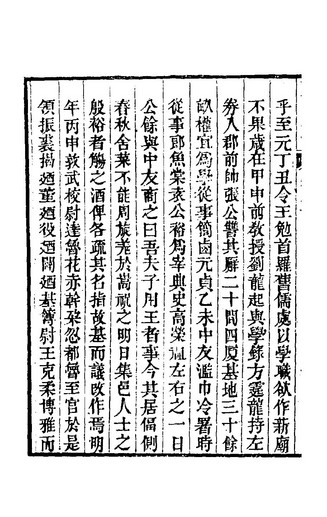 乎至元丁丑令王勉首羅舊儒處以學職欲作新廟
不果歲在甲申前教授劉龍起與學錄方霆龍持左
券入郡前帥張公瞽其厤二十間四厦基地三十餘
畝權宜為學從事簡函元貞乙未中友濫巾冷署時
從事郎魚棠袁公裕為宰與史高榮温左右之一日
公餘與中友商之曰吾夫子用王者事今其居偪側
春秋舍菜不能周旋羞於嵩祇之明日集邑人士之
殷裕者觴之酒俾各疏其名指故基而議改作焉明
年丙申敦武校尉達魯花赤幹朶忽都魯至官於是
領振裘揭廼董廼役廼闢廼基簿尉王克柔博雅而